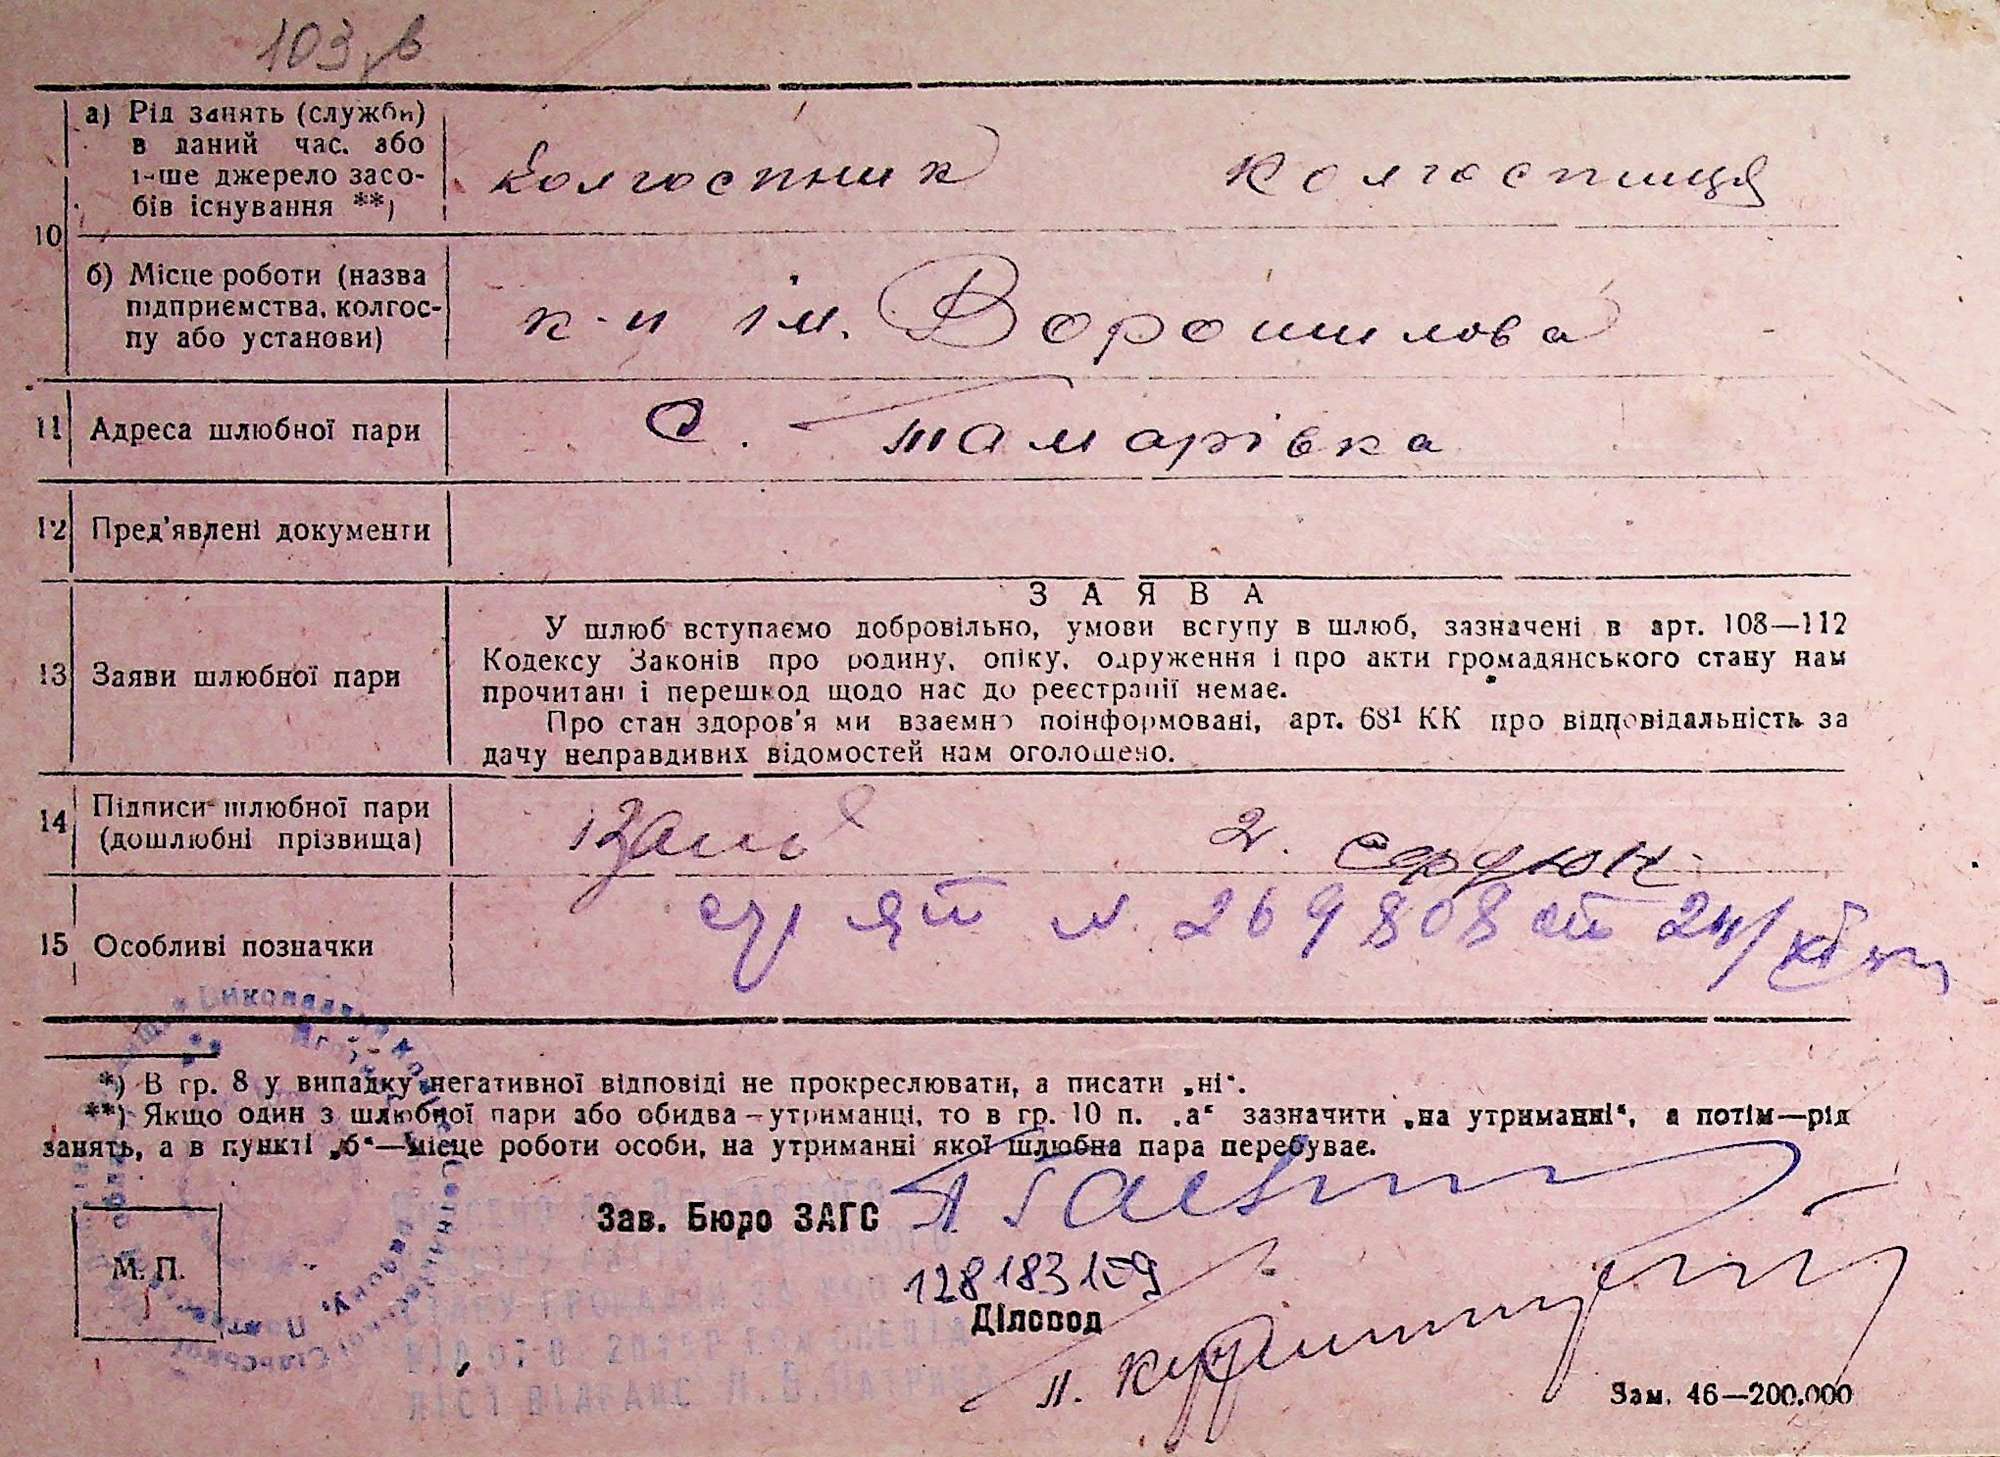 103
10
а) Рід занять (служби)
в даний час, або
інше джерело засо-
бів існування **)
Колгоспник Колгоспниця
б) Місце роботи (назва
підприємства, колгос-
пу або установи)
к-п ім. Ворошилова
11 Адреса шлюбної пари
с. Тамарівка
12 Пред'явлені документи
13 Заяви шлюбної пари
ЗАЯВА
У шлюб вступаємо добровільно, умови вступу в шлюб, зазначені в арт. 108—112
Кодексу Законів про родину, опіку, одруження і про акти громадянського стану нам
прочитані і перешкод щодо нас до реєстрації немає.
Про стан здоров'я ми взаємно поінформовані, арт. 68¹ КК про відповідальність за
дачу неправдивих відомостей нам оголошено.
14 Підписи шлюбної пари
(дошлюбні прізвища)
Сердюк
15 Особливі позначки
N 269808 от 24/
*) В гр. 8 у випадку негативної відповіді не прокреслювати, а писати „ні“.
**) Якщо один з шлюбної пари або обидва—утриманці, то в гр. 10 п. „а“ зазначити „на утриманні“, а потім—рід
занять, а в пункті „б“—місце роботи особи, на утриманні якої шлюбна пара перебуває.
Зав. Бюро ЗАГС
М. П.
128183159
Діловод
Зам. 46—200.000